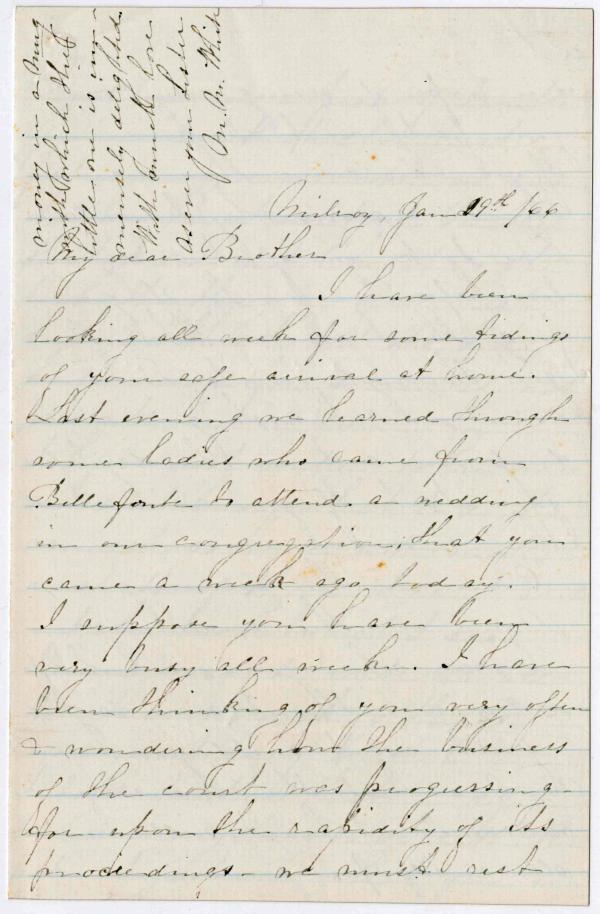 Milroy, Jan 29th /66
My dear Brother
I have been
looking all week for some tidings
of your safe arrival at home.
Last evening we learned through
some ladies who came from
Bellefonte to attend a wedding
in our congregation, that you
came a week ago today.
I suppose you have been
very busy all week. I have
been thinking of you very often
& wondering how the business
of the court was progressing –
for upon the rapidity of its
proceedings – we must rest
money in a mug
with which the
little one is im-
mensely delighted.
With much love
As ever your Sister
M. M. White